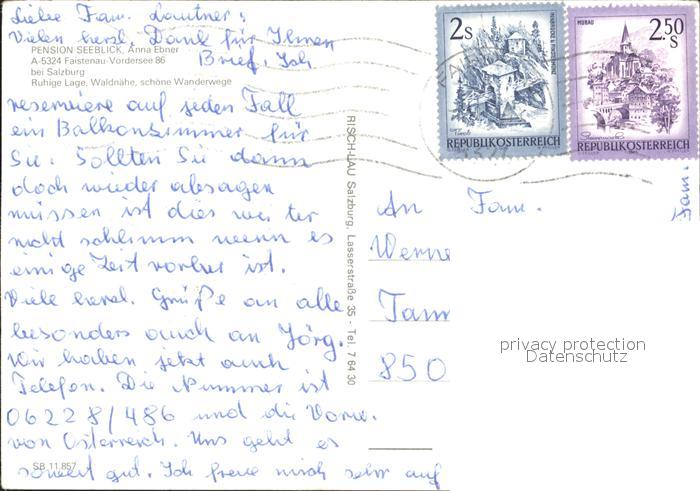 Liebe Fam. Lautner!
Vielen herzl. Dank für Ihnen
Brief. Ich
PENSION SEEBLICK, Anna Ebner
A-5324 Faistenau-Vordersee 86
bei Salzburg
Ruhige Lage, Waldnähe, schöne Wanderwege
reserviere auf jeden Fall
ein Balkonzimmer für
Sie. Sollten Sie dann
doch wieder absagen
müssen ist dies weiter
nicht schlimm wenn es
einige Zeit vorher ist.
Viele herzl. Grüße an alle
besonders auch an Jörg.
Wir haben jetzt auch
Telefon. Die Nummer ist
06228/486 und die Vorw.
von Österreich. Uns geht es
soweit gut. Ich freue mich sehr auf
SB 11.857
RISCH-LAU Salzburg, Lasserstraße 35 - Tel. 7 64 30
2 S
REPUBLIK ÖSTERREICH
MURAU
2.50 S
Steiermark
REPUBLIK ÖSTERREICH
An Fam.
Werne
850
Fam.
privacy protection
Datenschutz